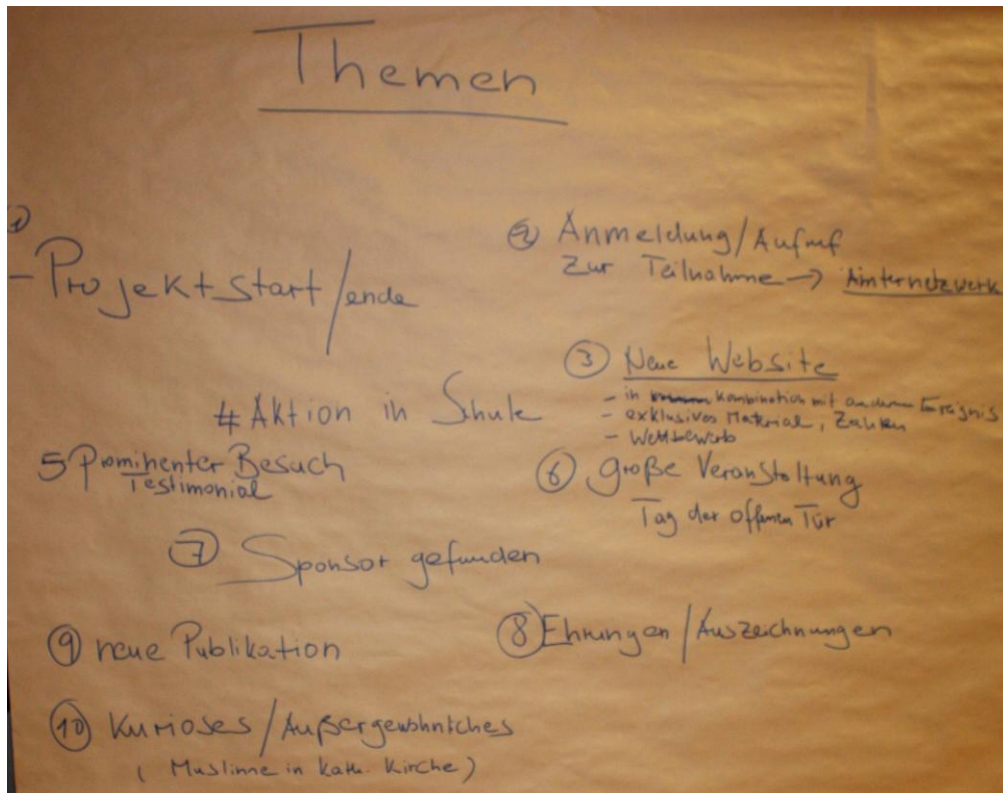 Themen
1)
- Projektstart/ende
2) Anmeldung/Aufruf
zur Teilnahme → Ämternetzwerk
3 Neue Website
- in Kombination mit anderem Ereignis
- exklusives Material, Zahlen
- Wettbewerb
4 Aktion in Schule
5 Prominenter Besuch
Testimonial
6 große Veranstaltung
Tag der offenen Tür
7 Sponsor gefunden
8 Ehrungen/Auszeichnungen
9 neue Publikation
10 Kurioses/Außergewöhnliches
( Muslime in kath. Kirche )